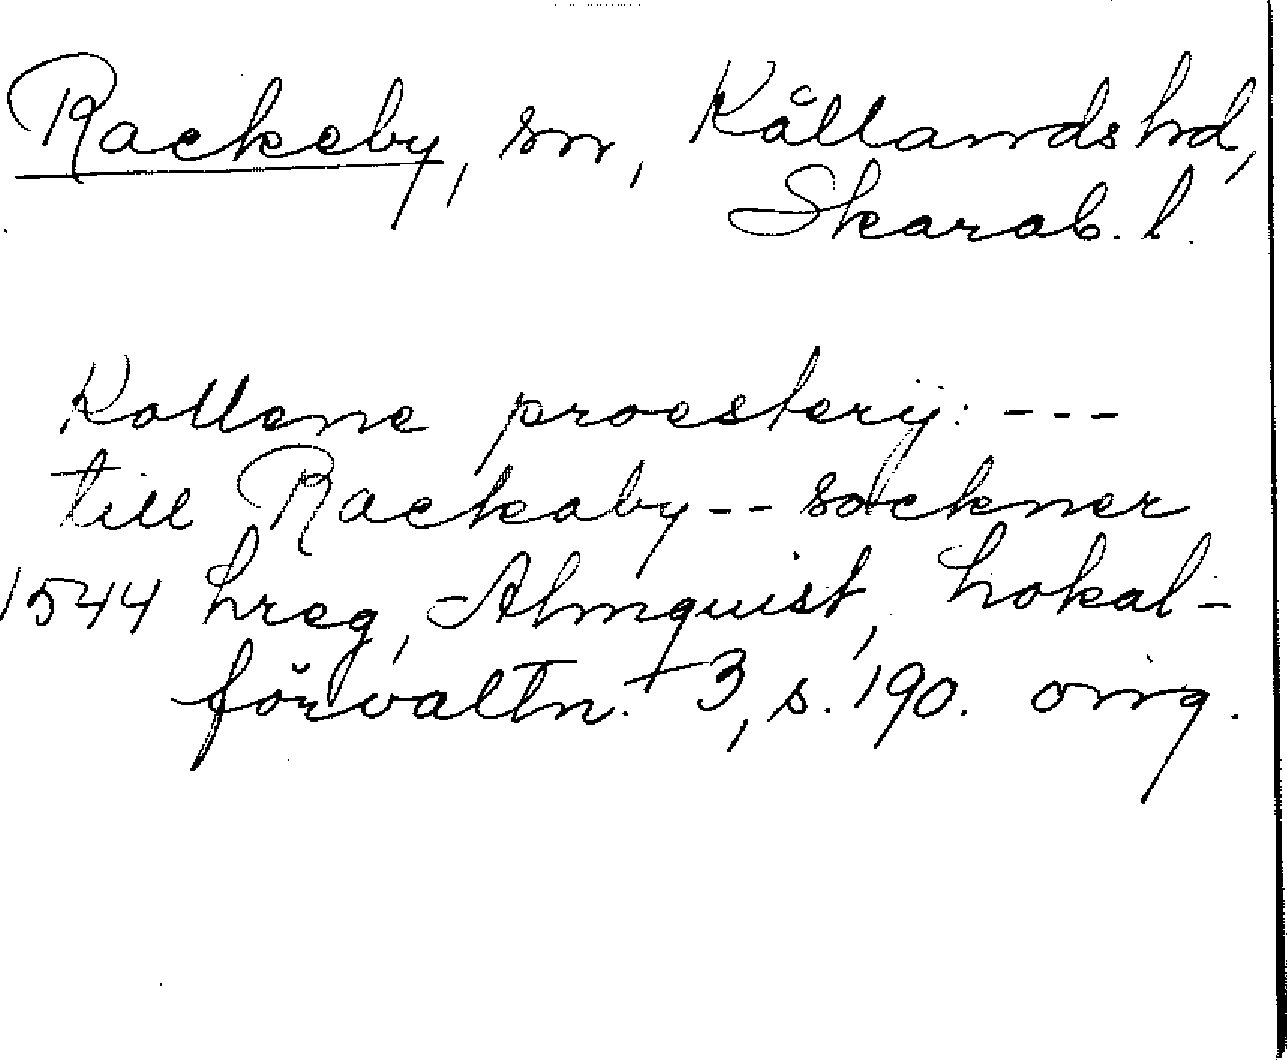 Rackeby, sn, Kållands hd,
Skarab. l.
Kollene proestery: ---
till Rackaby -- sockner
1544 hreg, Almquist, Lokal-
förvaltn. 3, s. 190. orig.